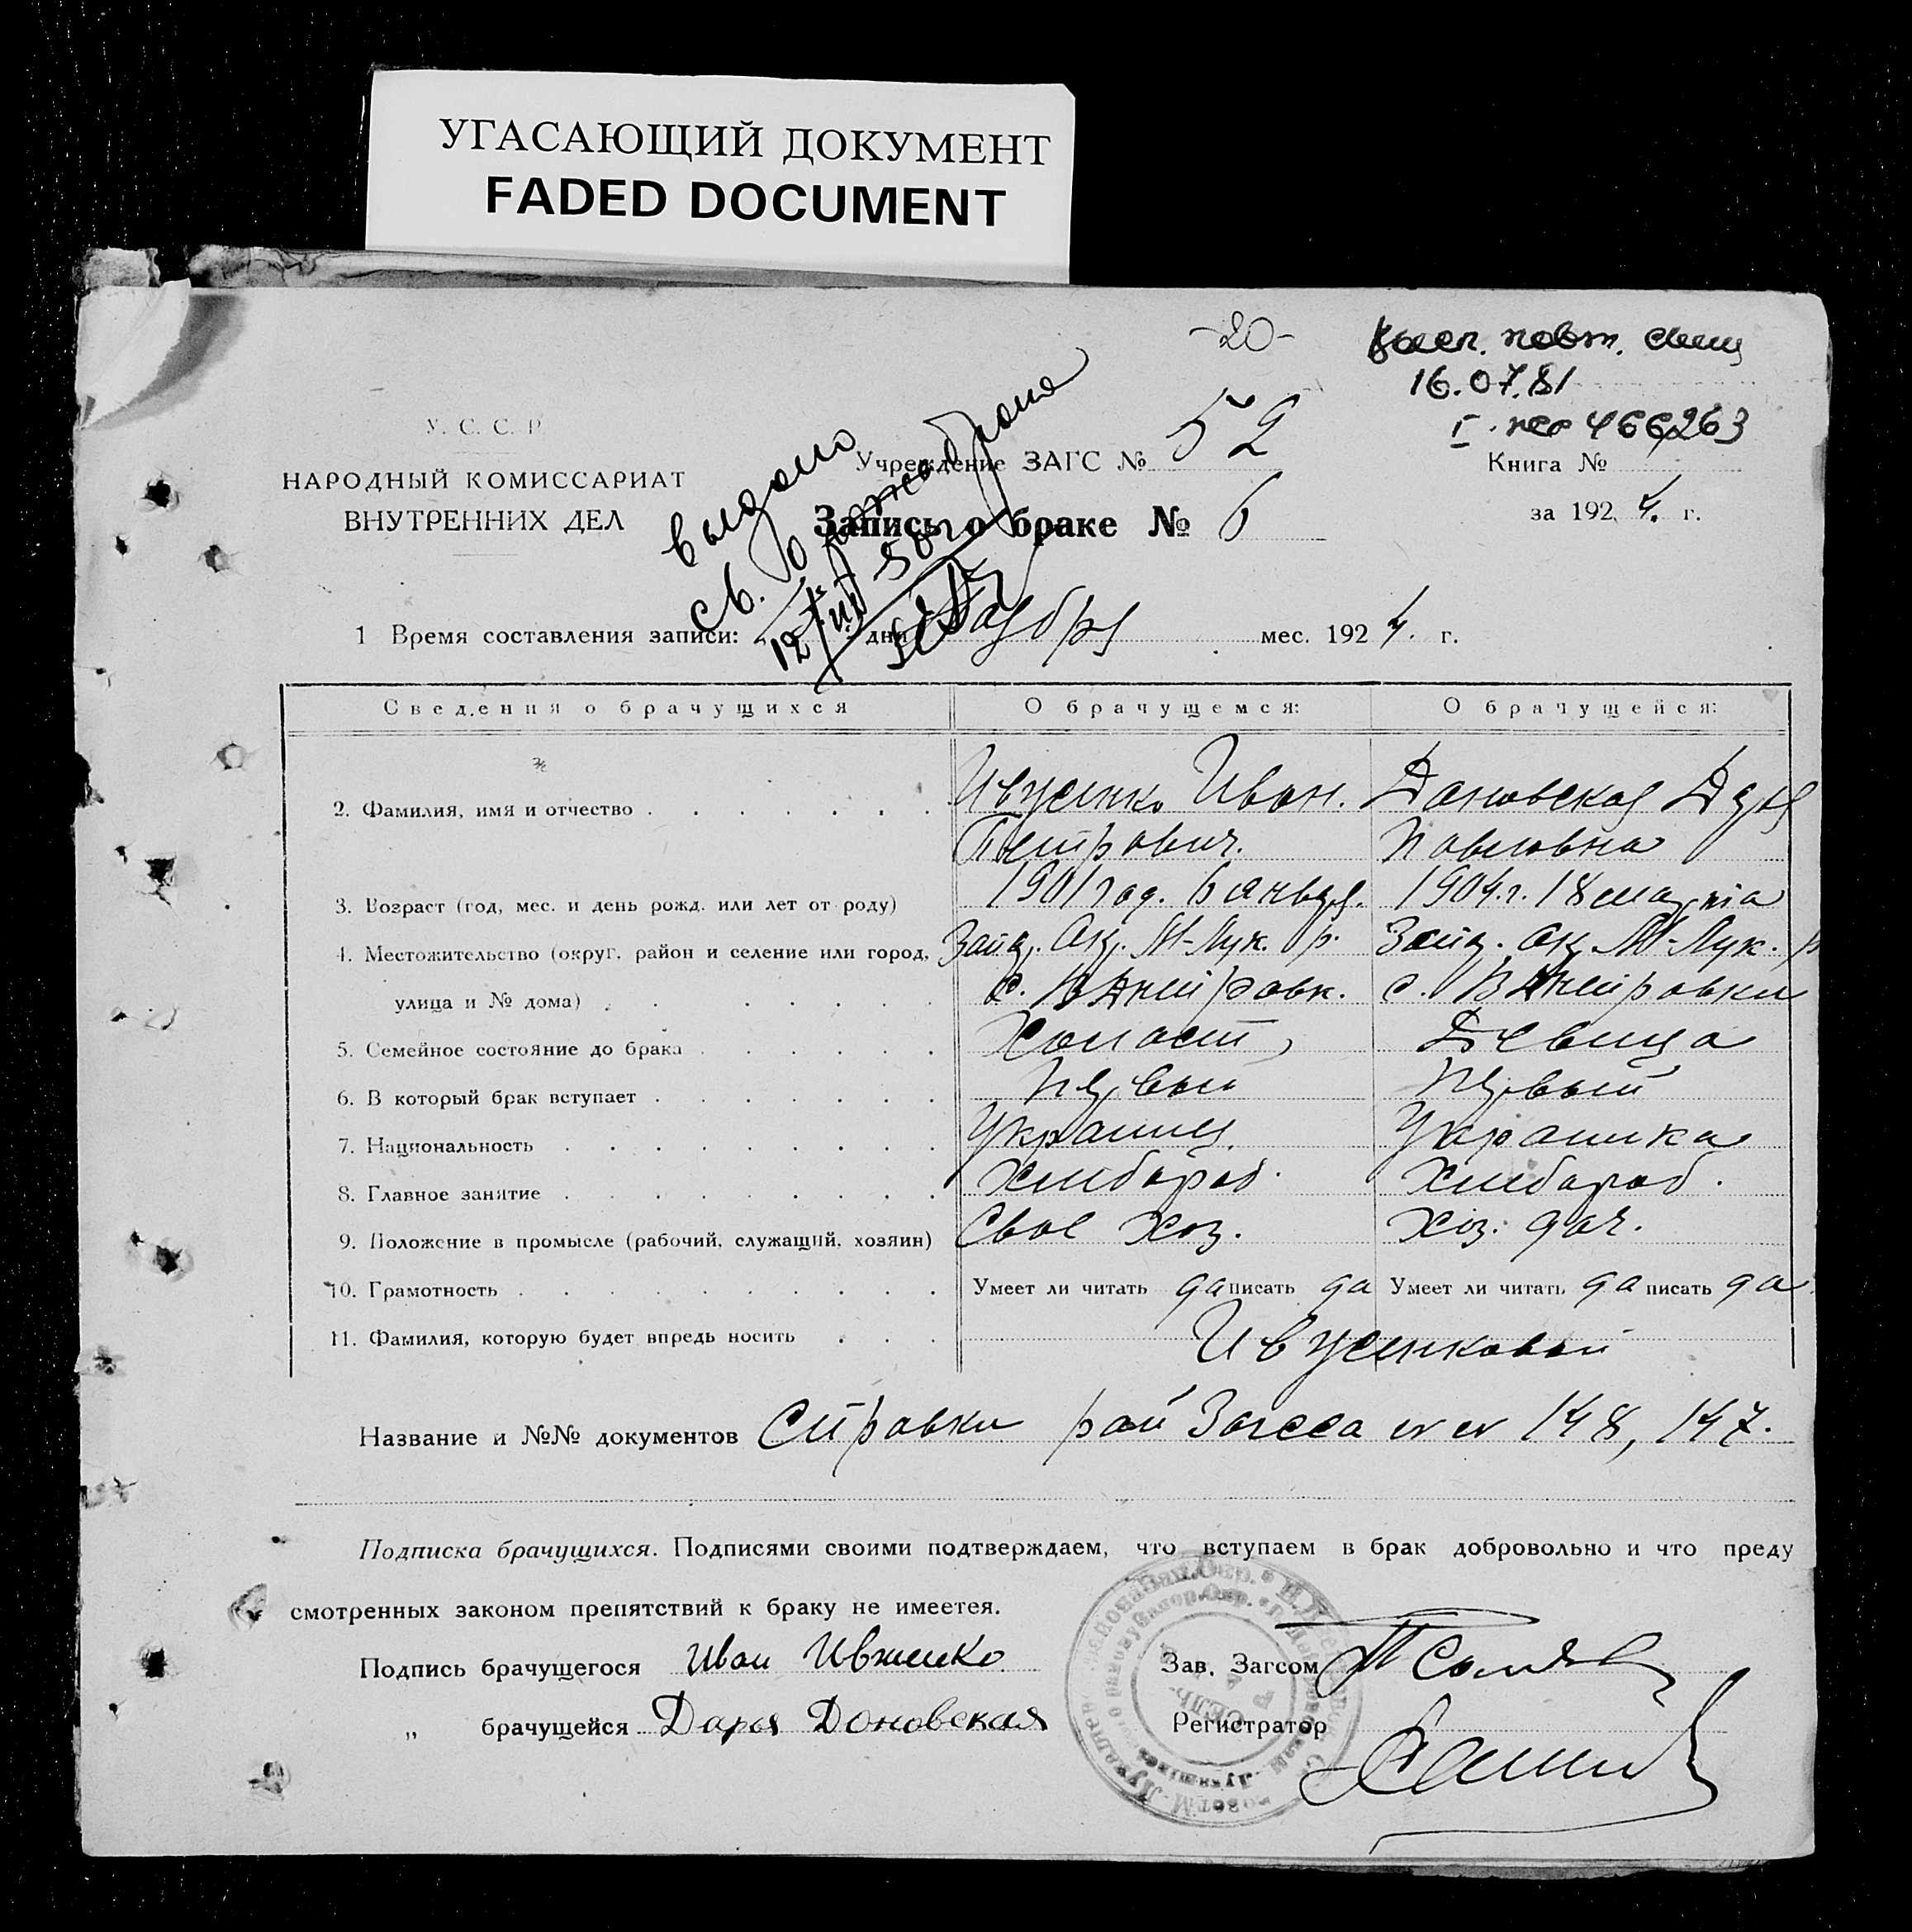 УГАСАЮЩИЙ ДОКУМЕНТ
FADED DOCUMENT
-20-
повт. свид
16.07.81
466263
У. С. С. Р
НАРОДНЫЙ КОМИССАРИАТ
ВНУТРЕННИХ ДЕЛ
Учреждение ЗАГС № 52
Книга №
Запись о браке № 6
за 1924. г.
выдано
св. о
1 Время составления записи: дни мес. 1924. г.
Сведения о брачущихся О брачущемся: О брачущейся:
2. Фамилия, имя и отчество Иван. Доновская
Петрович. Павловна
3. Возраст (год, мес. и день рожд. или лет от роду) 1901 год. 6 января. 1904.г. 18 марта
4. Местожительство (округ, район и селение или город, Запор. Окр. М-Лук. р. Запор. Окр. М-Лук. р
улица и № дома) с. В Днепровк. с. В Днепровки
5. Семейное состояние до брака Холост Девица
6. В который брак вступает Первый Первый
7. Национальность Украинец. Украинка
8. Главное занятие Хлибороб. Хлибороб.
9. Положение в промысле (рабочий, служащий, хозяин) Свое хоз. Хоз. доч.
10. Грамотность Умеет ли читать да писать да Умеет ли читать да писать да
11. Фамилия, которую будет впредь носить
Название и №№ документов Справки рай Загсса 148, 147.
Подписка брачущихся. Подписями своими подтверждаем, что вступаем в брак добровольно и что преду
смотренных законом препятствий к браку не имеется.
Подпись брачущегося Иван Ивженко
Зав. Загсом
„ брачущейся Дарья Доновская
Регистратор